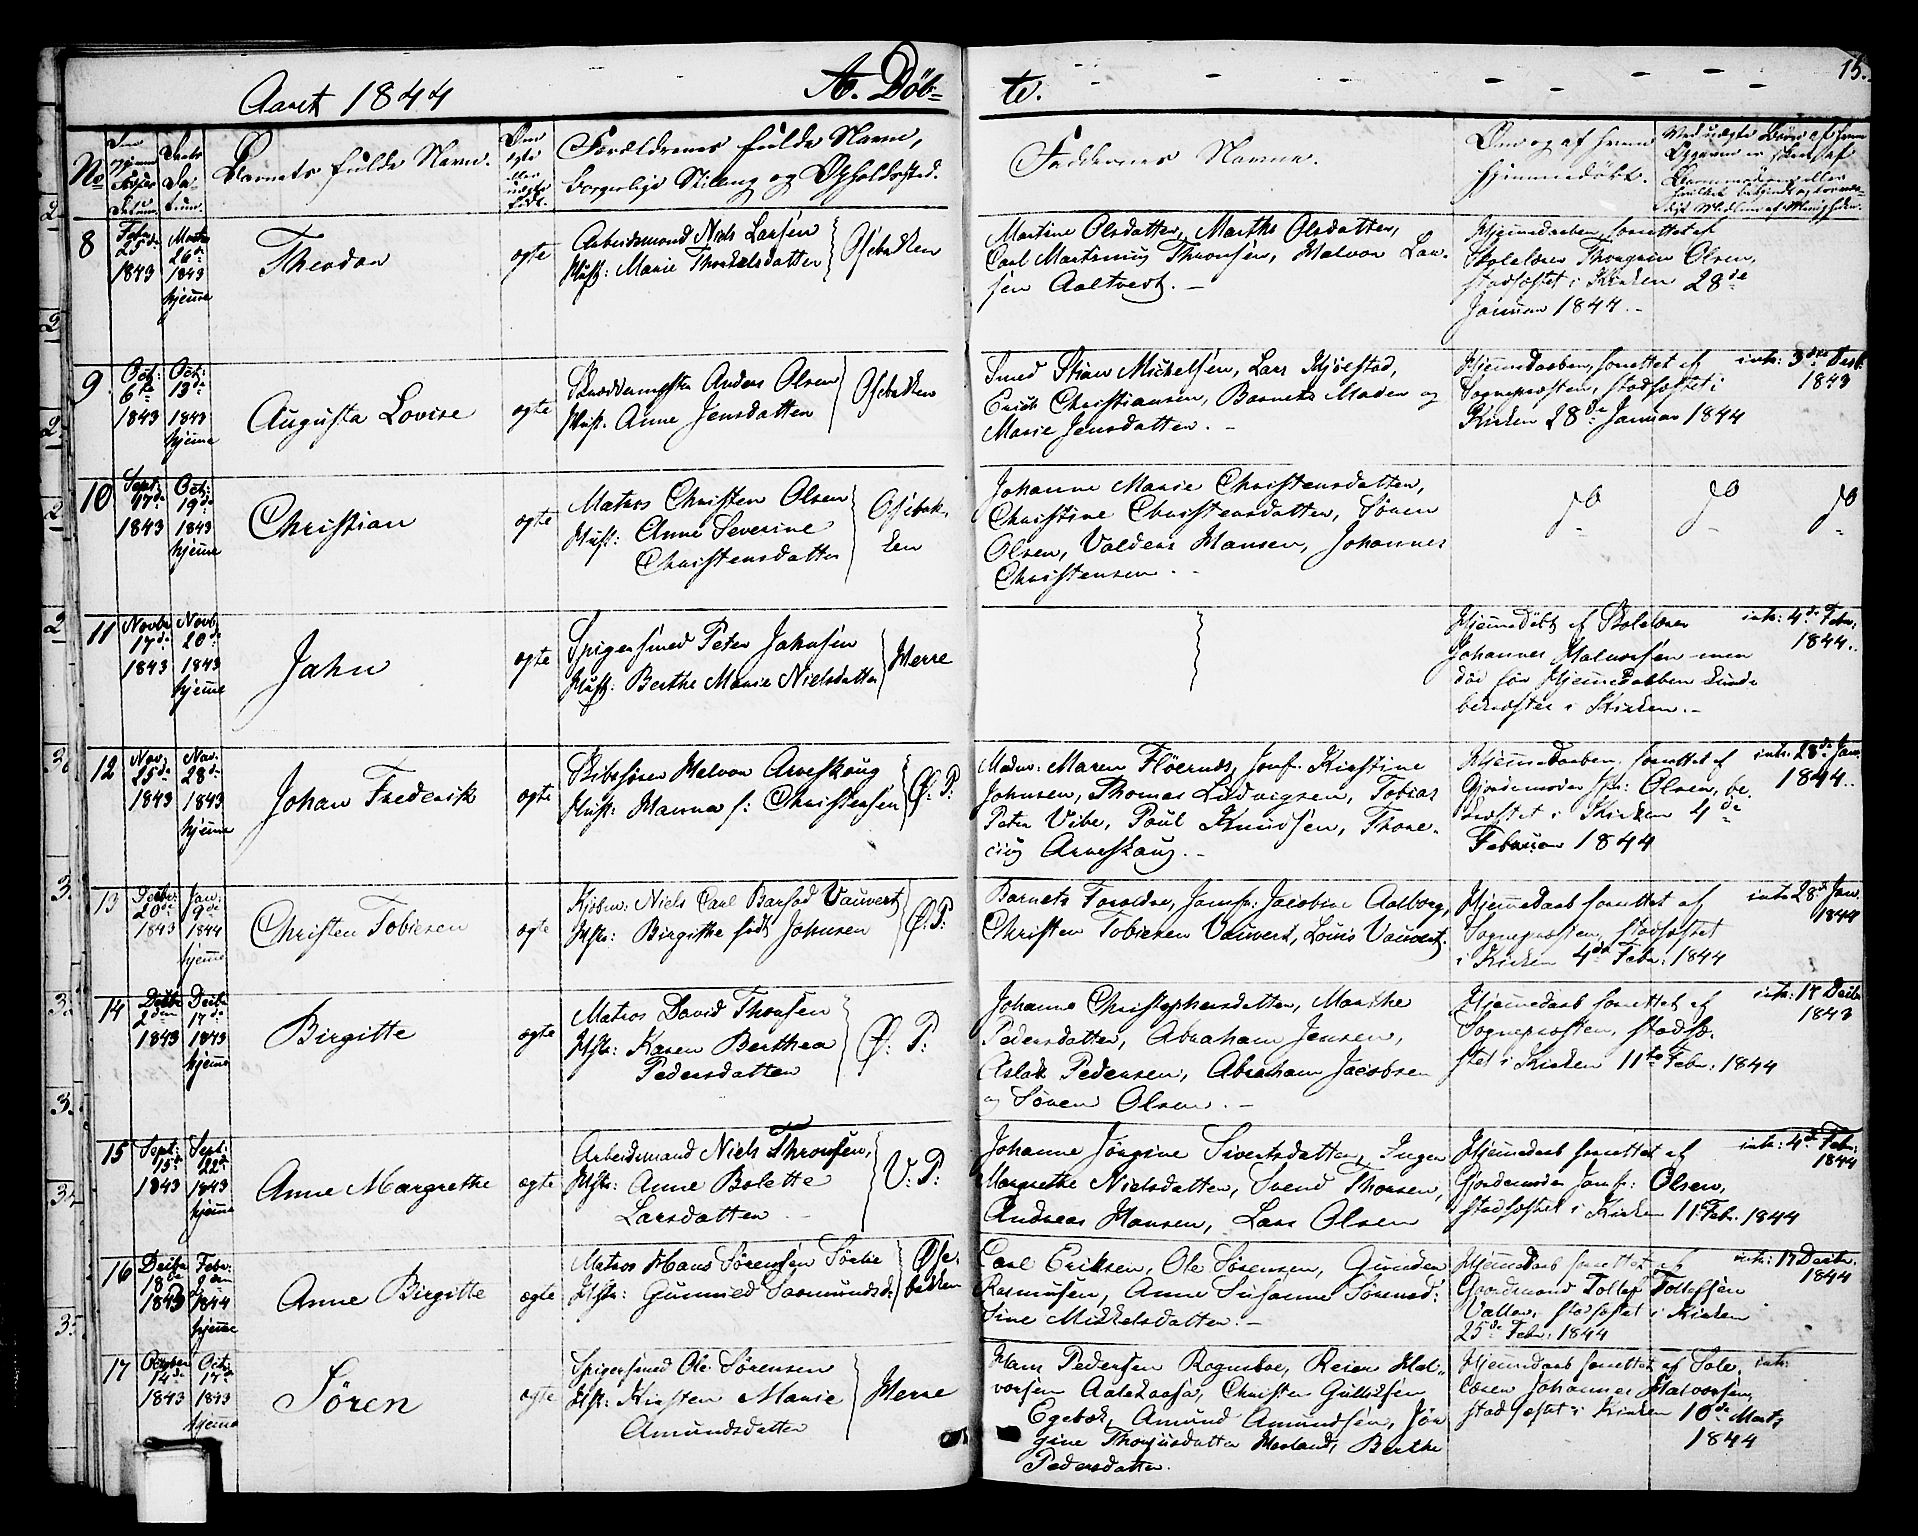 Aaret 1844
A. Döb=
te.
15.
No
Barnets fulde Navn.
Om ægte eller uægte födt.
Forældrenes fulde Navne,
borgerlige Stilling og Opholdssted.
Faddernes Navne.
Om og af hvem
hjemmedöbt.
8
Febr. 25de 1843
Marts 26de 1843 hjemme
Theodor
ægte
Arbeidsmand Niels Larsen
Hust: Marie Thorkelsdatter
Osebakken
Martine Olsdatter, Marthe Olsdatter,
Carl Martinius Thronsen, Halvor Lar-
sen Aaltvedt. —
Hjemmedaaben, forrettet af
Skolelærer Thorgrim Olsen,
stadfæstet i Kirken 28de
Januar 1844. -
9.
Oct: 6te 1843
Oct: 13de 1843 hjemme
Augusta Lovise
ægte
Anders Olsen
Hust. Anne Jensdatter
Osebakken
Smed Stian Michelsen, Lars Kjöestad,
Erich Christiansen, Barnets Moder og
Marie Jensdatter. -
Hjemmedaaben, forrettet af
Sognepræsten, stadfæstet i
Kirken 28de Januar 1844
intr: 3die Decbr. 1843
10
Sept: 17de 1843
Oct: 19de 1843 hjemme
Christian
ægte
Matros Christen Olsen
Hust: Anne Severine
Christensdatter
Osebak-
ken
Johanne Marie Christensdatter,
Christine Christensdatter, Sören
Olsen, Valders Hansen, Johannes
Christensen. -
do do do
11
Novbr 17de 1843
Novb. 20de 1843 hjemme
Jahn
ægte
Spigersmed Peter Jahnsen
Hust: Berthe Marie Nielsdatter
Herre
Hjemmedöbt af Skolelærer
Johannes Halvorsen men
död før Hjemmedaaben kunde
bekræftes i Kirken. -
intr: 4de Febr. 1844.
12
Nov. 25de 1843
Nov. 28de 1843 hjemme
Johan Frederik
ægte
Skibsförer Halvor Arveskoug
Hust: Hanna f: Christensen
Ø: P:
Madme: Maren Flöernes, Jomf. Kirstine
Johnsen, Thomas Ludvigsen, Tobias
Peter Vibe, Poul Knudsen, Thore-
cius Arveskoug. -
Hjemmedaaben, forrettet af
Gjordemoder Jfr: Olsen, be-
kræftet i Kirken 4de
Februar 1844
intr: 28de Jan. 1844.
13
Decbr: 20de 1843
Jan: 9de 1844 hjemme
Christen Tobiesen
ægte
Kjöbm: Niels Carl Barfod Vauvert
Hstr: Birgitte født Johnsen
Ø: P:
Barnets Forældre, Jomfr: Jacobine Aalborg,
Christen Tobiesen Vauvert, Louis Vauvert.
Hjemmedaab forrettet af
Sognepræsten, stadfæstet
i Kirken 4de Febr: 1844
intr 28de Jan. 1844
14
Decbr 2den 1843
Decbr 17de 1843 hjemme
Birgitte
ægte
Matros David Thorsen
Hstr: Karen Berthea
Pedersdatter
Ø: P:
Johanne Christophersdatter, Marthe
Pedersdatter, Abraham Jensen,
Aslak Pedersen, Abraham Jacobsen
og Sören Olsen. -
Hjemmedaab forrettet af
Sognepræsten, stadfæ-
stet i Kirken 11te Febr. 1844
intr: 17 Decbr 1843
15
Sept: 15de 1843
Sept: 22de 1843 hjemme
Anne Margrethe
ægte
Arbeidsmand Niels Thronsen,
Hstr: Anne Bolette
Larsdatter
V: P:
Johanne Jörgine Sivertsdatter, Inger
Margrethe Nielsdatter, Svend Thorsen,
Andreas Hansen, Lars Olsen
Hjemmedaab forrettet af
Gjordemoder Jomfr: Olsen,
stadfæstet i Kirken 11 Febr. 1844
intr: 4de Febr: 1844
16
Decbr 18de 1843
Febr. 2den 1844 hjemme
Anne Birgitte
ægte
Matros Hans Sörensen
Hstr: Gunnild Saamundsd.
Ose-
bakken
Carl Eriksen, Ole Sörensen, Gunder
Rasmusen, Anne Susanne Sörensd:
Sine Mikkelsdatter. -
Hjemmedaab forrettet af
Gaardmand Tollef Tollefsen
Vallen, stadfæstet i Kirken
25de Febr. 1844
intr: 17 Decbr. 1844
17
October 14de 1843
Oct: 17de 1843 hjemme
Sören
ægte
Spigersmed Ole Sörensen
Hstr: Kirsten Marie
Amundsdatter
Herre
Hans Pedersen Rognsboe, Reier Hal-
vorsen Aalekaasa, Christen Gullichsen
Egebæk, Amund Amundsen, Jör-
gine Thorjusdatter Herland, Berthe
Pedersdatter.
Hjemmedaab forrettet af Sole-
læren Johannes Halvorsen,
stadfæstet i Kirken 10de Marts
1844
intr: